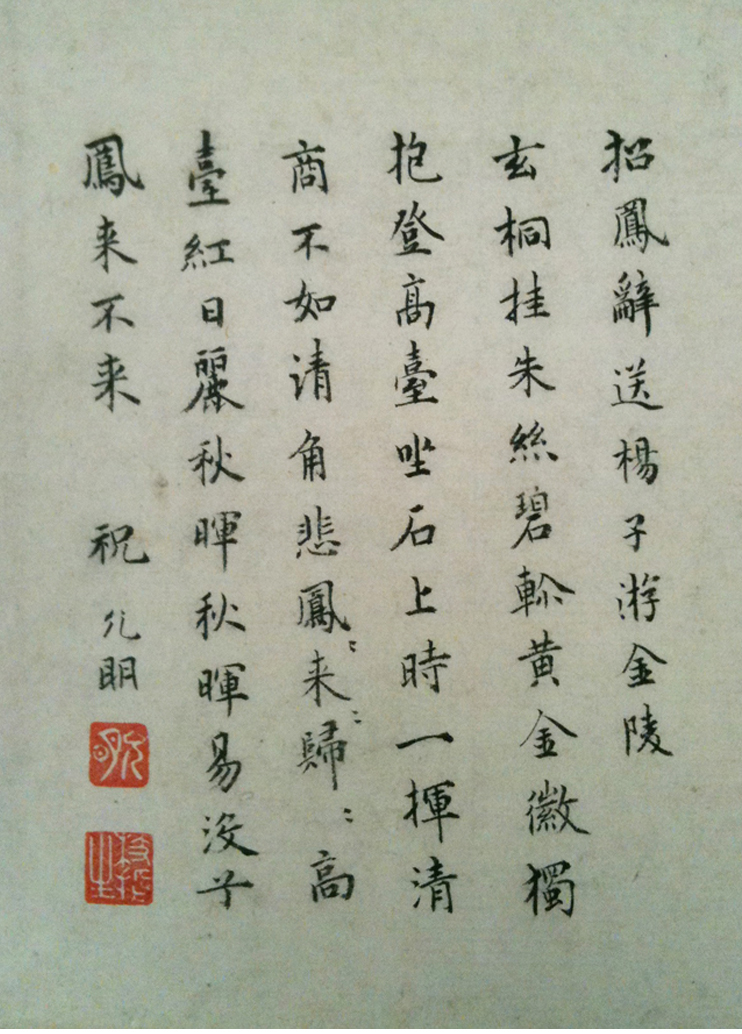 招鳳辭送楊子游金陵
玄桐挂朱絲碧軫黄金徽獨
抱登高臺坐石上時一揮清
商不如清角悲鳳〻来〻歸〻高
臺紅日麗秋暉秋暉易没子
鳳来不来 祝允明